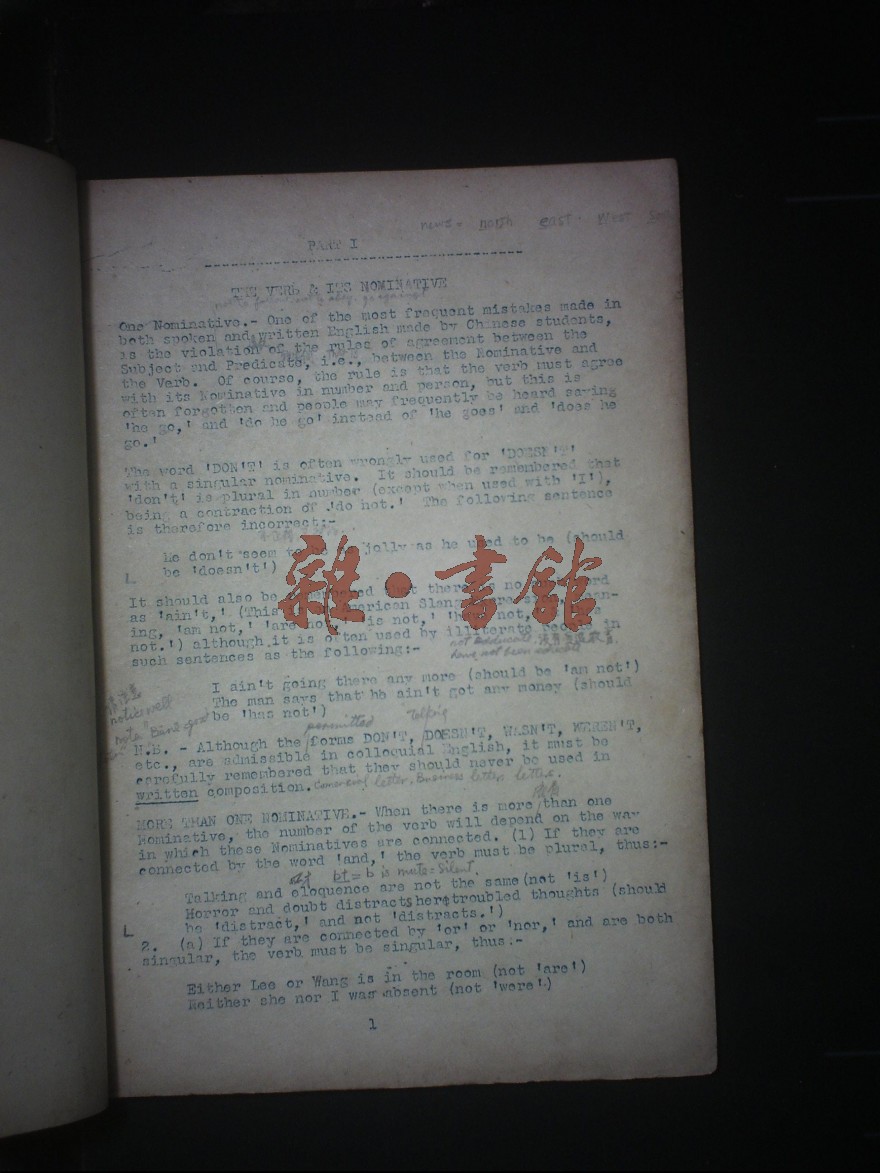 news = north east - West
PART I
THE VERB & ITS NOMINATIVE
One Nominative.- One of the most frequent mistakes made in
both spoken and written English made by Chinese students,
is the violation of the rules of agreement between the
Subject and Predicate, i.e., between the Nominative and
the Verb. Of course, the rule is that the verb must agree
with its Nominative in number and person, but this is
often forgotten and people may frequently be heard saying
'he go,' and 'do he go' instead of 'he goes' and 'does he
go.'
The word 'DON'T' is often wrongly used for 'DOESN'T'
with a singular nominative. It should be remembered that
'don't' is plural in number (except when used with 'I'),
being a contraction of 'do not.' The following sentence
is therefore incorrect:-
He don't seem to jolly as he used to be (should
be 'doesn't')
雜·書館
It should also be that there no word
as 'ain't,' (This American Slang mean-
ing, 'am not,' 'are not,' is not,' not,
not.') although it is often used by illiterate people in
such sentences as the following:-
not educated
have not been
I ain't going there any more (should be 'am not')
The man says that he ain't got any money (should
be 'has not')
notice well
nota "Bene = good
permitted Talking
N.B. - Although the forms DON'T, DOESN'T, WASN'T, WEREN'T,
etc., are admissible in colloquial English, it must be
carefully remembered that they should never be used in
written composition. Comercial letter, Business letter, letter.
MORE THAN ONE NOMINATIVE.- When there is more than one
Nominative, the number of the verb will depend on the way
in which these Nominatives are connected. (1) If they are
connected by the word 'and,' the verb must be plural, thus:-
bt = b is mute = Silent.
Talking and eloquence are not the same (not 'is')
Horror and doubt distracts her troubled thoughts (should
be 'distract,' and not 'distracts.')
2. (a) If they are connected by 'or' or 'nor,' and are both
singular, the verb must be singular, thus:-
Either Lee or Wang is in the room (not 'are')
Neither she nor I was absent (not 'were')
1